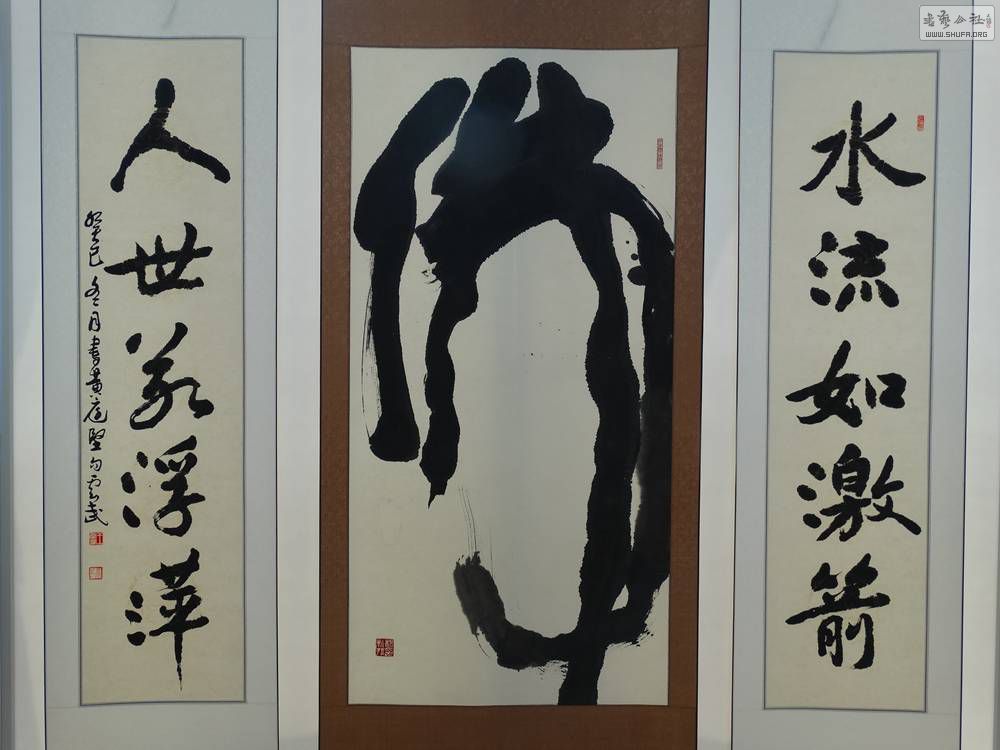 水流如激箭
人世若浮萍
癸巳冬月書黄庭堅句云武
書藝公社
WWW.SHUFA.ORG